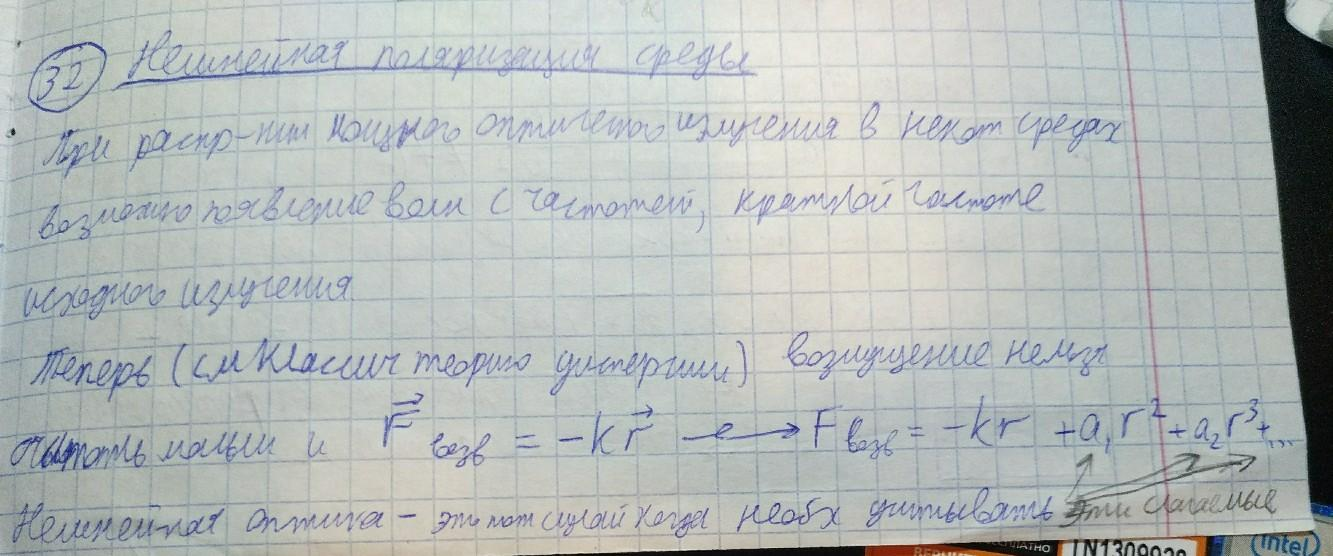 32 Нелинейная поляризация среды
При распр-нии мощного оптичетого излучения в некот средах
возможно появление волн с частотой, кратной частоте
исходного излучения
Теперь (см Классич теорию дисперсии) возмущение нельзя
считать малым и F⃗ возв = -kr⃗ → F возв = -kr + a₁r² + a₂r³ + ...
Нелинейная оптика – это тот случай когда необх учитывать эти слагаемые
1N1309020
(intel)